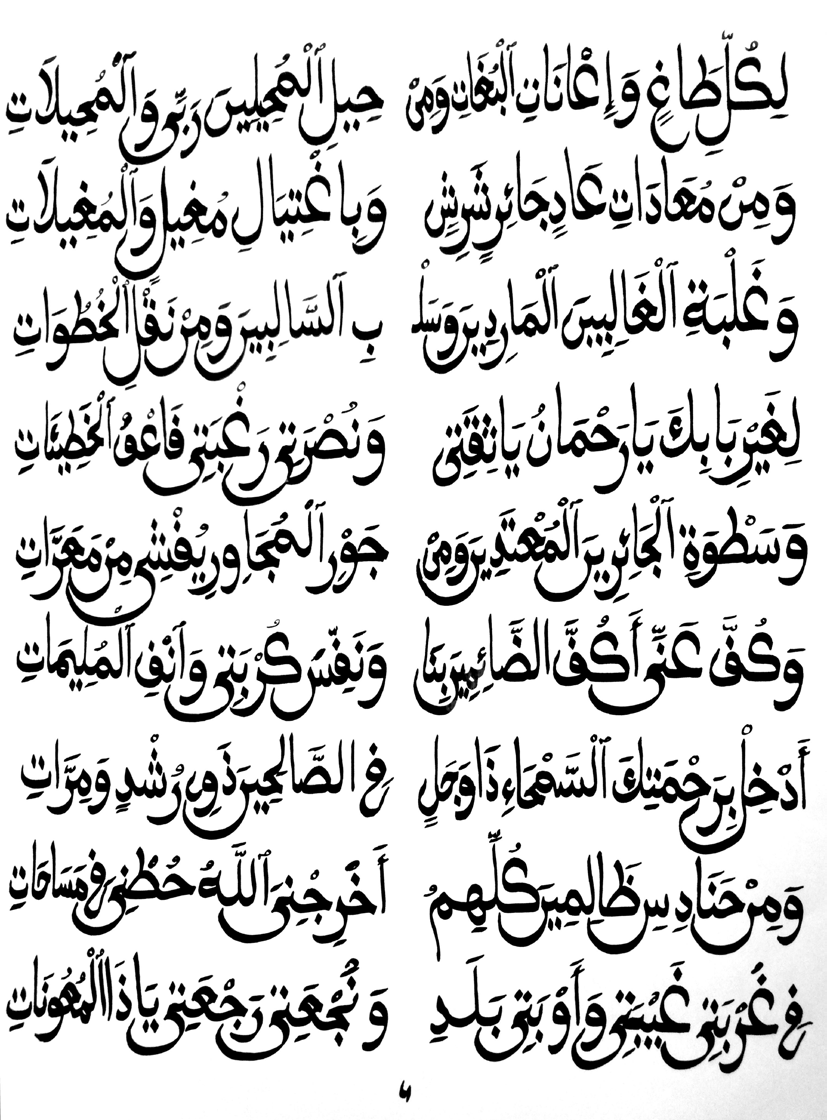 لِكُلِّ طَاغٍ وَإِعْانَاتِ ٱلْبُغَاتِ وَمِنْ حِيلِ ٱلْمُحِيلِينَ رَبِّى وَٱلْمُحِيلَاتِ
وَمِنْ مُعَادَاتِ عَادٍ جَائِرٍ شَرِشٍ وَبِاغْتِيَالِ مُغِيلٍ وَٱلْمُغِيلَاتِ
وَغَلْبَةِ ٱلْغَالِبِينَ ٱلْمَارِدِينَ وَسَلْبِ ٱلسَّالِبِينَ وَمِنْ نَقْلِ ٱلْخُطُوَاتِ
لِغَيْرِ بَابِكَ يَا رَحْمَانُ يَا ثِقَتِى وَنُصْرَتِى رَغْبَتِى فَاعْفُ ٱلْخَطِيئَاتِ
وَسَطْوَةِ ٱلْجَائِرِينَ ٱلْمُعْتَدِينَ وَمِنْ جَوْرِ ٱلْمُجَاوِرِ يُفْشِى مِنْ مَعَرَّاتِ
وَكُفَّ عَنِّى أَكُفَّ الضَّائِمِينَ بِنَا وَنَفِّسَ كُرْبَتِى وَٱنْفِ ٱلْمُلِيمَاتِ
أَدْخِلْ بِرَحْمَتِكَ ٱلسَّمْحَاءِ ذَا وَجَلٍ فِى الصَّالِحِينَ ذَوِى رُشْدٍ وَمِرَّاتِ
وَمِنْ حَنَادِسِ ظَالِمِينَ كُلِّهِمُ أَخْرِجْنِىَ ٱللَّهُ حُطْنِى فِى مَسَاحَاتِ
فِى غُرْبَتِى غَيْبَتِى وَأَوْبَتِى بَلَدِ وَنُجْعَتِى رَجْعَتِى يَا ذَا ٱلْمُعُونَاتِ